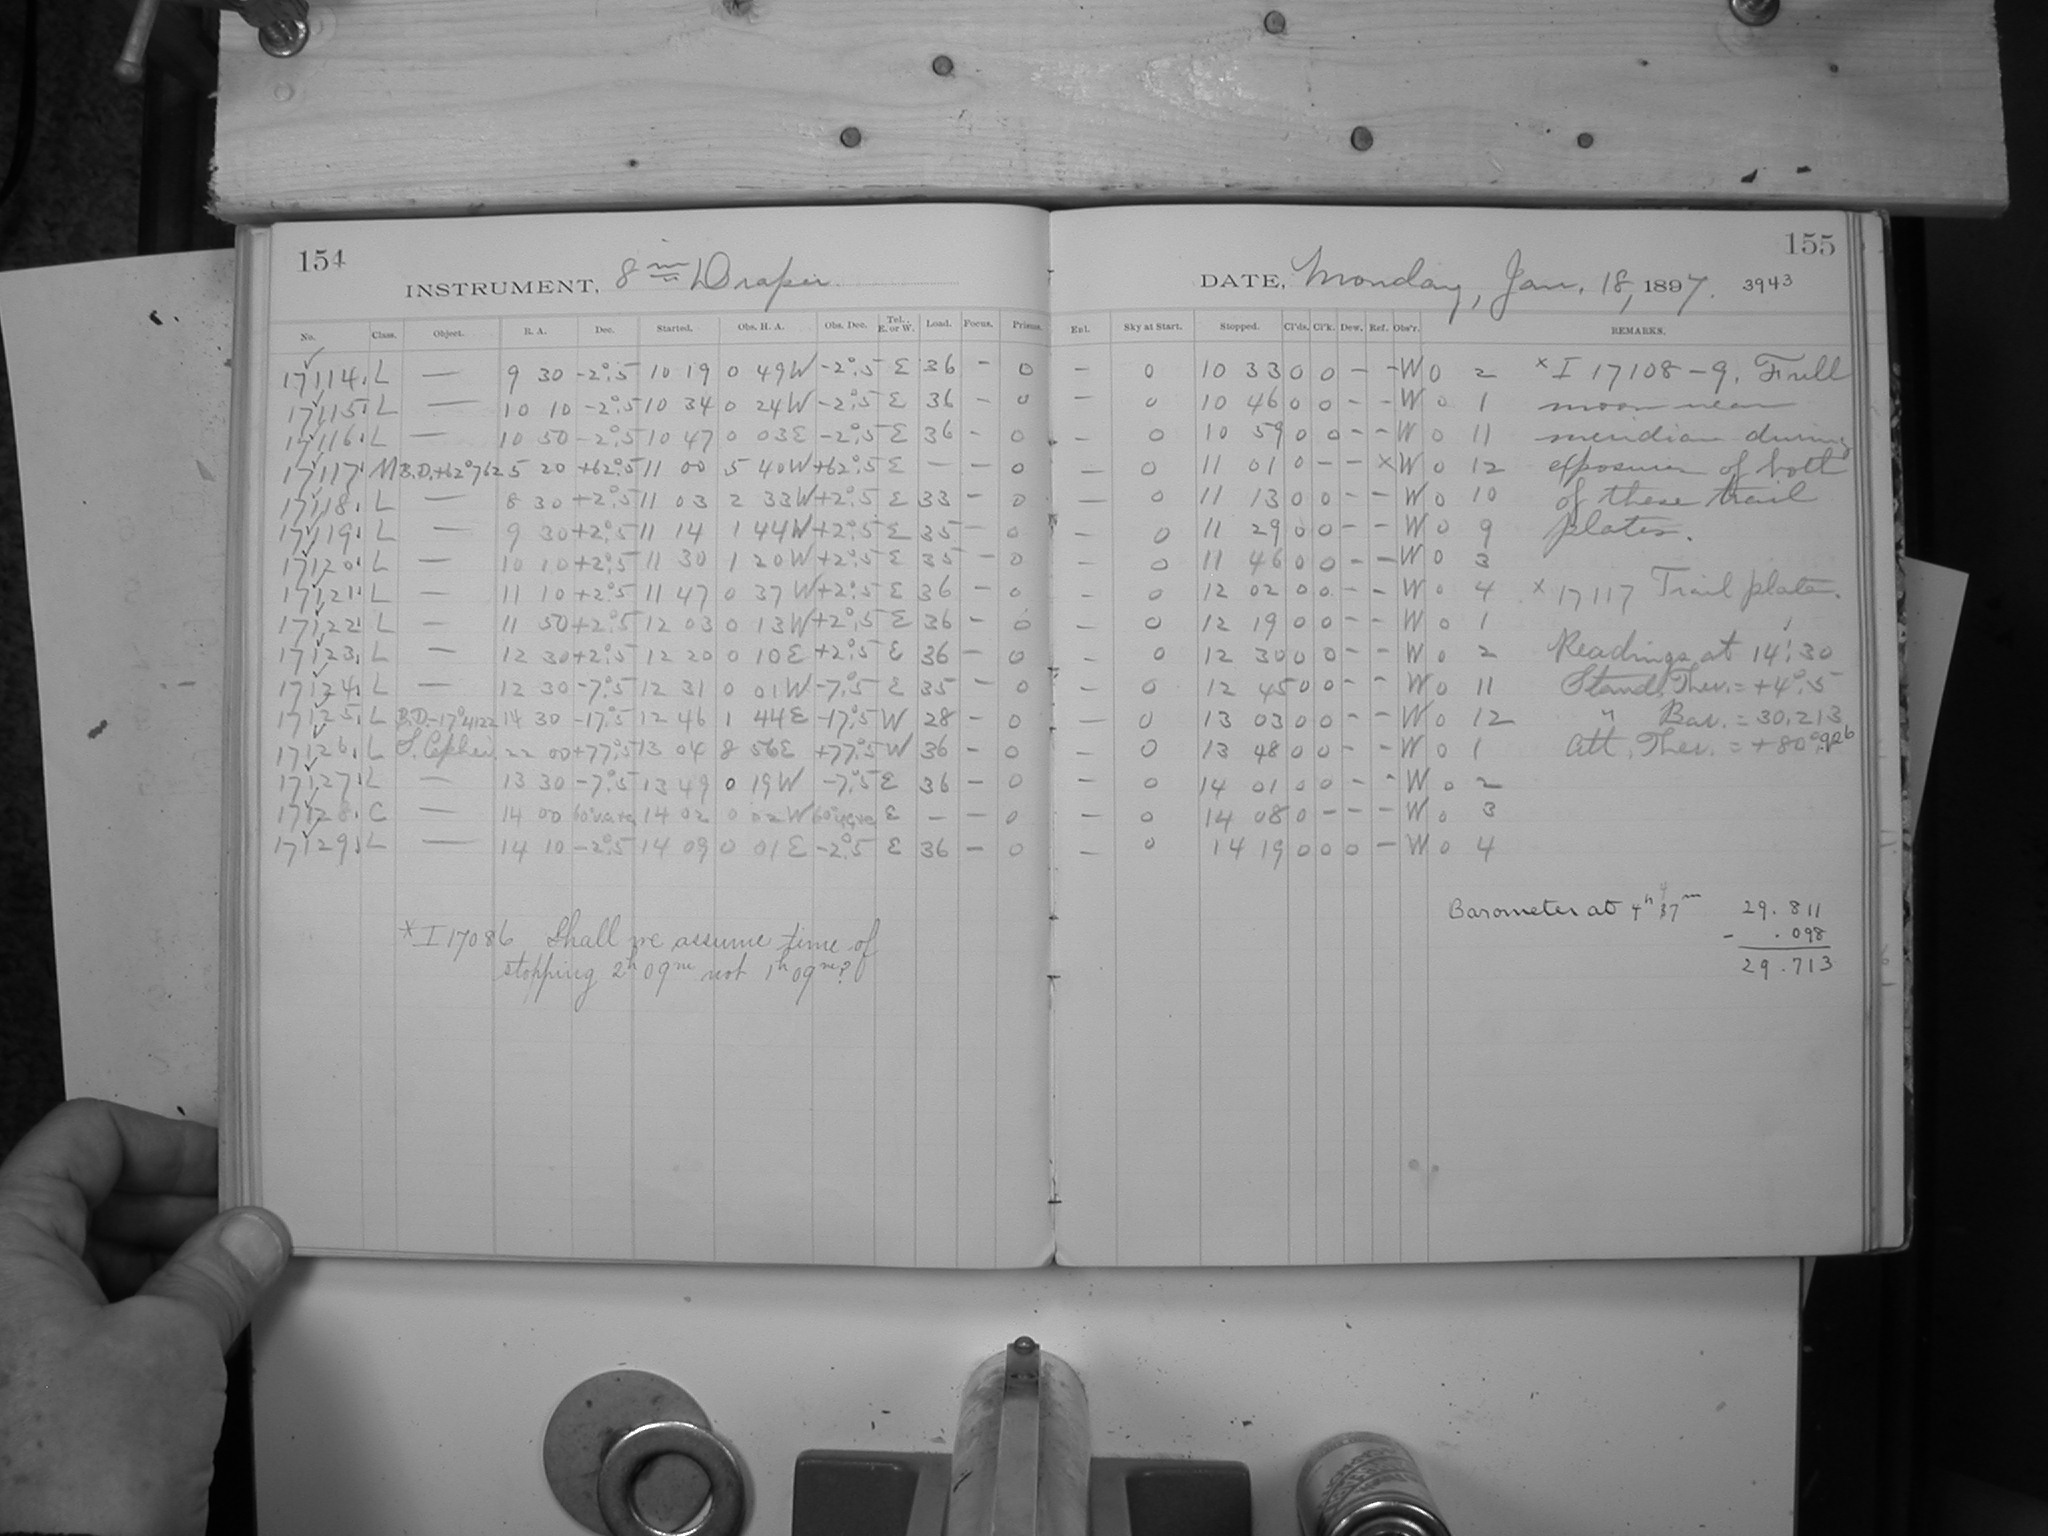 154
INSTRUMENT, 8 in Draper
No. Class. Object. R. A. Dec. Started. Obs. H. A. Obs. Dec. Tel., E. or W. Load. Focus. Prisms.
17114. L — 9 30 -2°.5 10 19 0 49W -2°.5 E 36 - 0
17115. L — 10 10 -2°.5 10 34 0 24W -2°.5 E 36 - 0
17116. L — 10 50 -2°.5 10 47 0 03E -2°.5 E 36 - 0
17117. M B.D.+62°762 5 20 +62°.5 11 00 5 40W +62°.5 E — — 0
17118. L — 8 30 +2°.5 11 03 2 33W +2°.5 E 33 - 0
17119. L — 9 30 +2°.5 11 14 1 44W +2°.5 E 35 - 0
17120. L — 10 10 +2°.5 11 30 1 20W +2°.5 E 35 - 0
17121. L — 11 10 +2°.5 11 47 0 37W +2°.5 E 36 - 0
17122. L — 11 50 +2°.5 12 03 0 13W +2°.5 E 36 - 0
17123. L — 12 30 +2°.5 12 20 0 10E +2°.5 E 36 - 0
17124. L — 12 30 -7°.5 12 31 0 01W -7°.5 E 35 - 0
17125. L B.D.-17°4122 14 30 -17°.5 12 46 1 44E -17°.5 W 28 - 0
17126. L Cephei 22 00 +77°.5 13 04 8 56E +77°.5 W 36 - 0
17127. L — 13 30 -7°.5 13 49 0 19W -7°.5 E 36 - 0
17128. C — 14 00 14 02 0 02W E — — 0
17129. L — 14 10 -2°.5 14 09 0 01E -2°.5 E 36 - 0
*I 17086 Shall we assume time of
stopping 2h 09m not 1h 09m?
155
DATE, Monday, Jan. 18, 1897. 3943
Exl. Sky at Start. Stopped. Cl'ds. Cl'k. Dew. Ref. Obs'r. REMARKS.
— 0 10 33 0 0 - - W 0 2 *I 17108-9. Full
— 0 10 46 0 0 - - W 0 1 moon near
— 0 10 59 0 0 - - W 0 11 meridian during
— 0 11 01 0 - - × W 0 12 exposure of both
— 0 11 13 0 0 - - W 0 10 of these trail
— 0 11 29 0 0 - - W 0 9 plates.
— 0 11 46 0 0 - - W 0 3
— 0 12 02 0 0 - - W 0 4 *17117 Trail plate.
— 0 12 19 0 0 - - W 0 1
— 0 12 30 0 0 - - W 0 2 Readings at 14:30
— 0 12 45 0 0 - - W 0 11 Stand. Ther. = +4°.5
— 0 13 03 0 0 - - W 0 12 " Bar. = 30.213
— 0 13 48 0 0 - - W 0 1 Att. Ther. = +80°
— 0 14 01 0 0 - - W 0 2
— 0 14 08 0 - - - W 0 3
— 0 14 19 0 0 0 - W 0 4
Barometer at 4h 37m 29.811
- .098
29.713